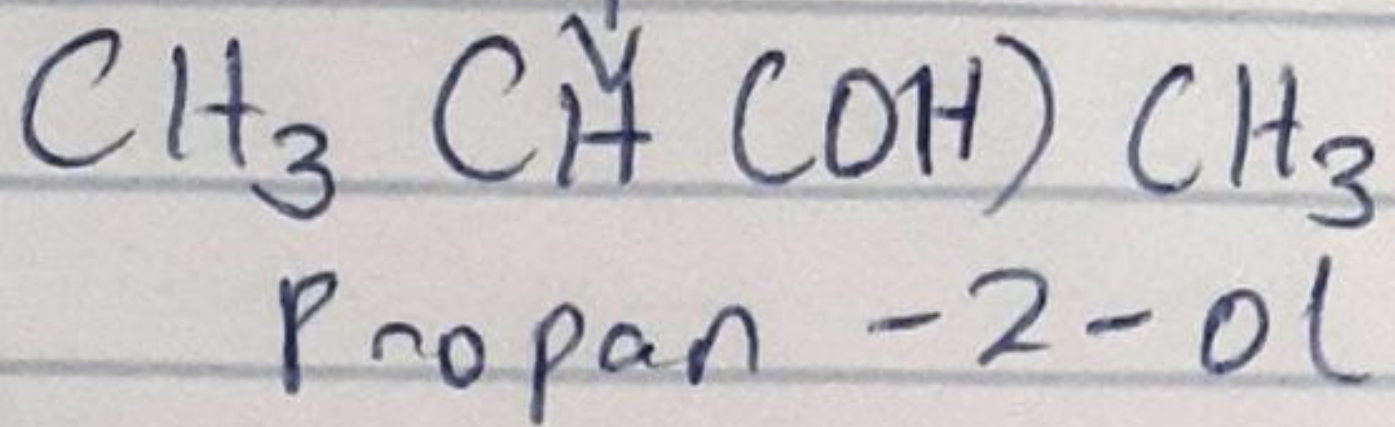 CH₃ CH (OH) CH₃
Propan - 2 - ol